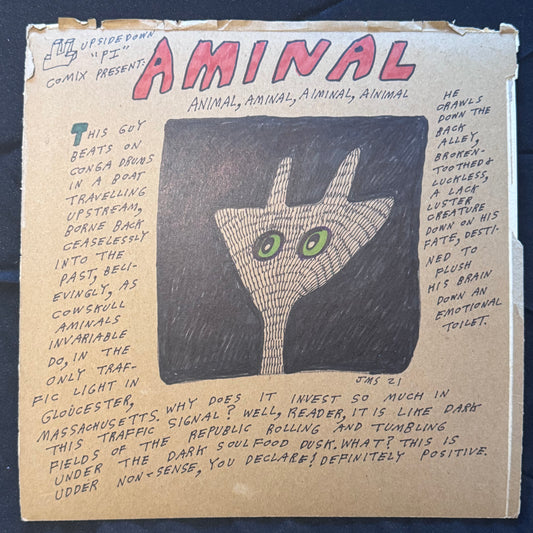 UPSIDEDOWN
"PI"
COMIX PRESENT:
AMINAL
ANIMAL, AMINAL, AIMINAL, AINIMAL
THIS GUY
BEATS ON
CONGA DRUMS
IN A BOAT
TRAVELLING
UPSTREAM,
BORNE BACK
CEASELESSLY
INTO THE
PAST, BELI-
EVINGLY, AS
COWSKULL
AMINALS
INVARIABLE
DO, IN THE
ONLY TRAF-
FIC LIGHT IN
GLOUCESTER,
MASSACHUSETTS. WHY DOES IT INVEST SO MUCH IN
THIS TRAFFIC SIGNAL? WELL, READER, IT IS LIKE DARK
FIELDS OF THE REPUBLIC ROLLING AND TUMBLING
UNDER THE DARK SOULFOOD DUSK. WHAT? THIS IS
UDDER NON-SENSE, YOU DECLARE! DEFINITELY POSITIVE.
HE
CRAWLS
DOWN THE
BACK
ALLEY,
BROKEN-
TOOTHED &
LUCKLESS,
A LACK
LUSTER
CREATURE
DOWN ON HIS
FATE, DESTI-
NED TO
PLUSH
HIS BRAIN
DOWN AN
EMOTIONAL
TOILET.
JMS 21